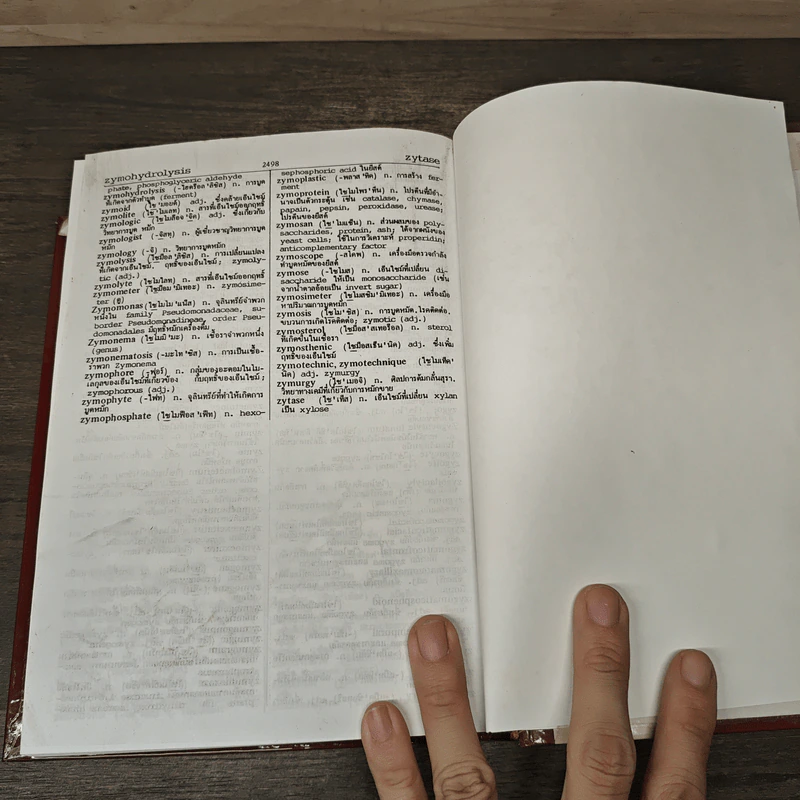 zymohydrolysis
2498
zytase
phate, phosphoglyceric aldehyde
zymohydrolysis (-ไฮดรอล'ลิซิส) n. การบูด
ที่เกิดจากตัวทำบูด (ferment)
zymoid (ไซ'มอยด์) adj. ซึ่งคล้ายเอ็นไซม์
zymolite (ไซ'โมไลท) n. สารที่เอ็นไซม์ออกฤทธิ์
zymologic (ไซโมล๊อจ'จิค) adj. ซึ่งเกี่ยวกับ
วิทยาการบูด หมัก
zymologist (-จิสทฺ) n. ผู้เชี่ยวชาญวิทยาการบูด
หมัก
zymology (-จี) n. วิทยาการบูดหมัก
zymolysis (ไซมอล'ลิซิส) n. การเปลี่ยนแปลง
ที่เกิดจากเอ็นไซม์, ฤทธิ์ของเอ็นไซม์; zymoly-
tic (adj.)
zymolyte (ไซโมไลท) n. สารที่เอ็นไซม์ออกฤทธิ์
zymometer (ไซมอม'มิเทอะ) n. zymosime-
ter (ดู)
Zymomonas (ไซโมโม'แน็ส) n. จุลินทรีย์จำพวก
หนึ่งใน family Pseudomonadaceae, su-
border Pseudomonadineae, order Pseu-
domonadales มีฤทธิ์หมักเครื่องดื่ม
Zymonema (ไซโมนี'มะ) n. เชื้อราจำพวกหนึ่ง
(genus)
zymonematosis (-มะโท'ซิส) n. การเป็นเชื้อ-
ราพวก Zymonema
zymophore (-ฟอร์) n. กลุ่มของอะตอมในโม-
เลกุลของเอ็นไซม์ที่เกี่ยวข้อง กับฤทธิ์ของเอ็นไซม์;
zymophorous (adj.)
zymophyte (-ไฟท) n. จุลินทรีย์ที่ทำให้เกิดการ
บูดหมัก
zymophosphate (ไซโมฟอส'เฟท) n. hexo-
sephosphoric acid ในยีสต์
zymoplastic (-พลาส'ทิค) n. การสร้าง fer-
ment
zymoprotein (ไซโมโพร'ทีน) n. โปรตีนที่มีอำ-
นาจเป็นตัวกระตุ้น เช่น catalase, chymase,
papain, pepsin, peroxidase, urease;
โปรตีนของยีสต์
zymosan (ไซ'โมแซ็น) n. ส่วนผสมของ poly-
saccharides, protein, ash; ได้จากผนังของ
yeast cells; ใช้ในการวิเคราะห์ properidin;
anticomplementary factor
zymoscope (-สโคพ) n. เครื่องมือตรวจกำลัง
ทำบูดหมักของยีสต์
zymose (-ไซโมส) n. เอ็นไซม์ที่เปลี่ยน di-
saccharide ให้เป็น monosaccharide (เช่น
จากน้ำตาลอ้อยเป็น invert sugar)
zymosimeter (ไซโมสซิม'มิเทอะ) n. เครื่องมือ
หาปริมาณการบูดหมัก
zymosis (ไซโม'ซิส) n. การบูดหมัก,โรคติดต่อ,
ขบวนการเกิดโรคติดต่อ; zymotic (adj.)
zymosterol (ไซมอส'สเทอรอล) n. sterol
ที่เกิดขึ้นในเชื้อรา
zymosthenic (ไซมอสธีน'นิค) adj. ซึ่งเพิ่ม
ฤทธิ์ของเอ็นไซม์
zymotechnic, zymotechnique (ไซโมเทค'
นิค) adj. zymurgy
zymurgy (ไซ'เมอจี) n. ศิลปการต้มกลั่นสุรา,
วิทยาทางเคมีที่เกี่ยวกับการหมักขาย
zytase (ไซ'เทส) n. เอ็นไซม์ที่เปลี่ยน xylan
เป็น xylose